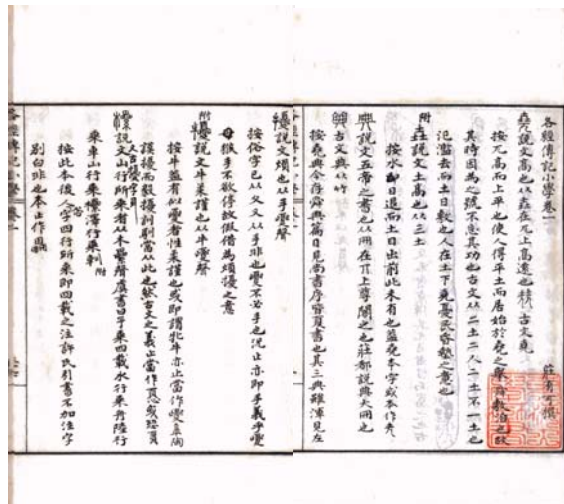 各經傳記小學卷一
莊有可撰
堯說文高也从垚在兀上高遠也 古文堯
按兀高而上平也使人得平土而居始於堯之 故
其時因為之號不忘其功也古文从二土二人二土不一土也
氾濫去而土日 也人在土下 憂民昏墊之意也
附垚說文土高也从三土
按水卻日退而土日出前此未有也蓋堯本字或本作
典說文五帝之書也从冊在丌上尊閣之也莊都說典大冊也
古文典从竹
按堯典今存舜典篇目見尚書序 頁書也其三典雖渾見左
擾說文煩也从手夒聲
按俗字已从文又从手非也夒 手也況止亦即手義乎夒
母猴手不欲停故假借為煩擾之意
附 說文牛柔謹也从牛夒聲
按牛蓋有似夒者性柔謹也或即謂牝牛亦止當作夒 陶
謨擾而毅擾訓馴當从此也然古文之義止當作
說文山行所乘者从木 聲虞書曰予乘四載水行乘舟陸行
乘車山行乘欙澤行乘 附
按此本後人 字四行所乘即四載之注許氏引書不加注字
別白非也本止作